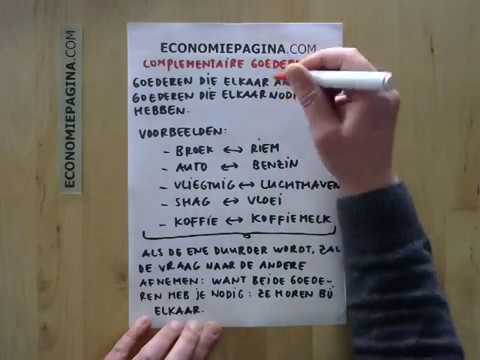 ECONOMIEPAGINA.COM
ECONOMIEPAGINA.COM
COMPLEMENTAIRE
GOEDEREN DIE ELKAAR
GOEDEREN DIE ELKAAR NODIG
HEBBEN.
VOORBEELDEN:
- BROEK ↔ RIEM
- AUTO ↔ BENZIN
- VLIEGTUIG ↔ LUCHTHAVEN
- SHAG ↔ VLOEI
- KOFFIE ↔ KOFFIEMELK
ALS DE ENE DUURDER WORDT, ZAL
DE VRAAG NAAR DE ANDERE
AFNEMEN: WANT BEIDE GOEDE-
REN HEB JE NODIG: ZE HOREN BIJ
ELKAAR.